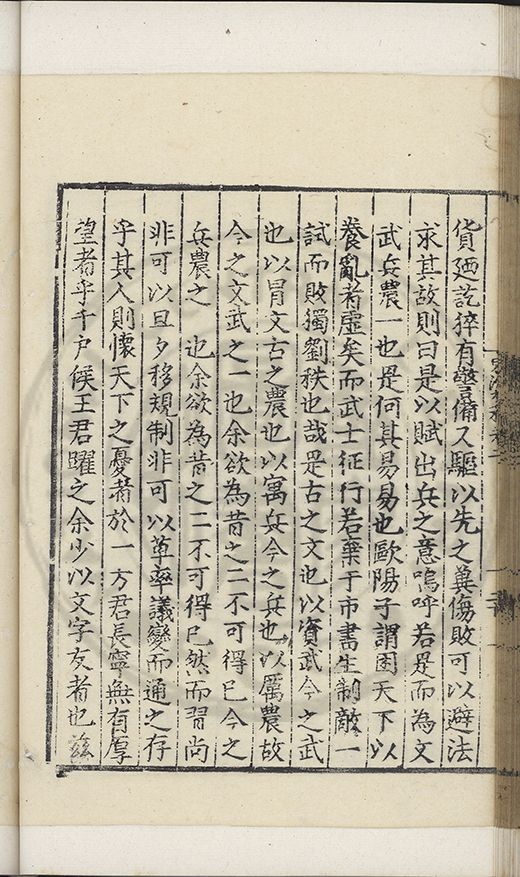 貨廼詑猝有警備又驅以先之冀傷敗可以避法
求其故則曰是以賦出兵之意嗚呼若是而為文
武兵農一也是何其易易也歐陽子謂困天下以
養亂者虛矣而武士征行若棄于市書生制敵一
試而敗獨劉秩也哉是古之文也以資武今之武
也以冒文古之農也以寓兵今之兵也以厲農故
今之文武之一也余欲為昔之二不可得已今之
兵農之 也余欲為昔之二不可得已然而習尚
非可以旦夕移規制非可以草率議變而通之存
乎其人則懷天下之憂者於一方君長寧無有厚
望者乎千戶侯王君躍之余少以文字友者也茲